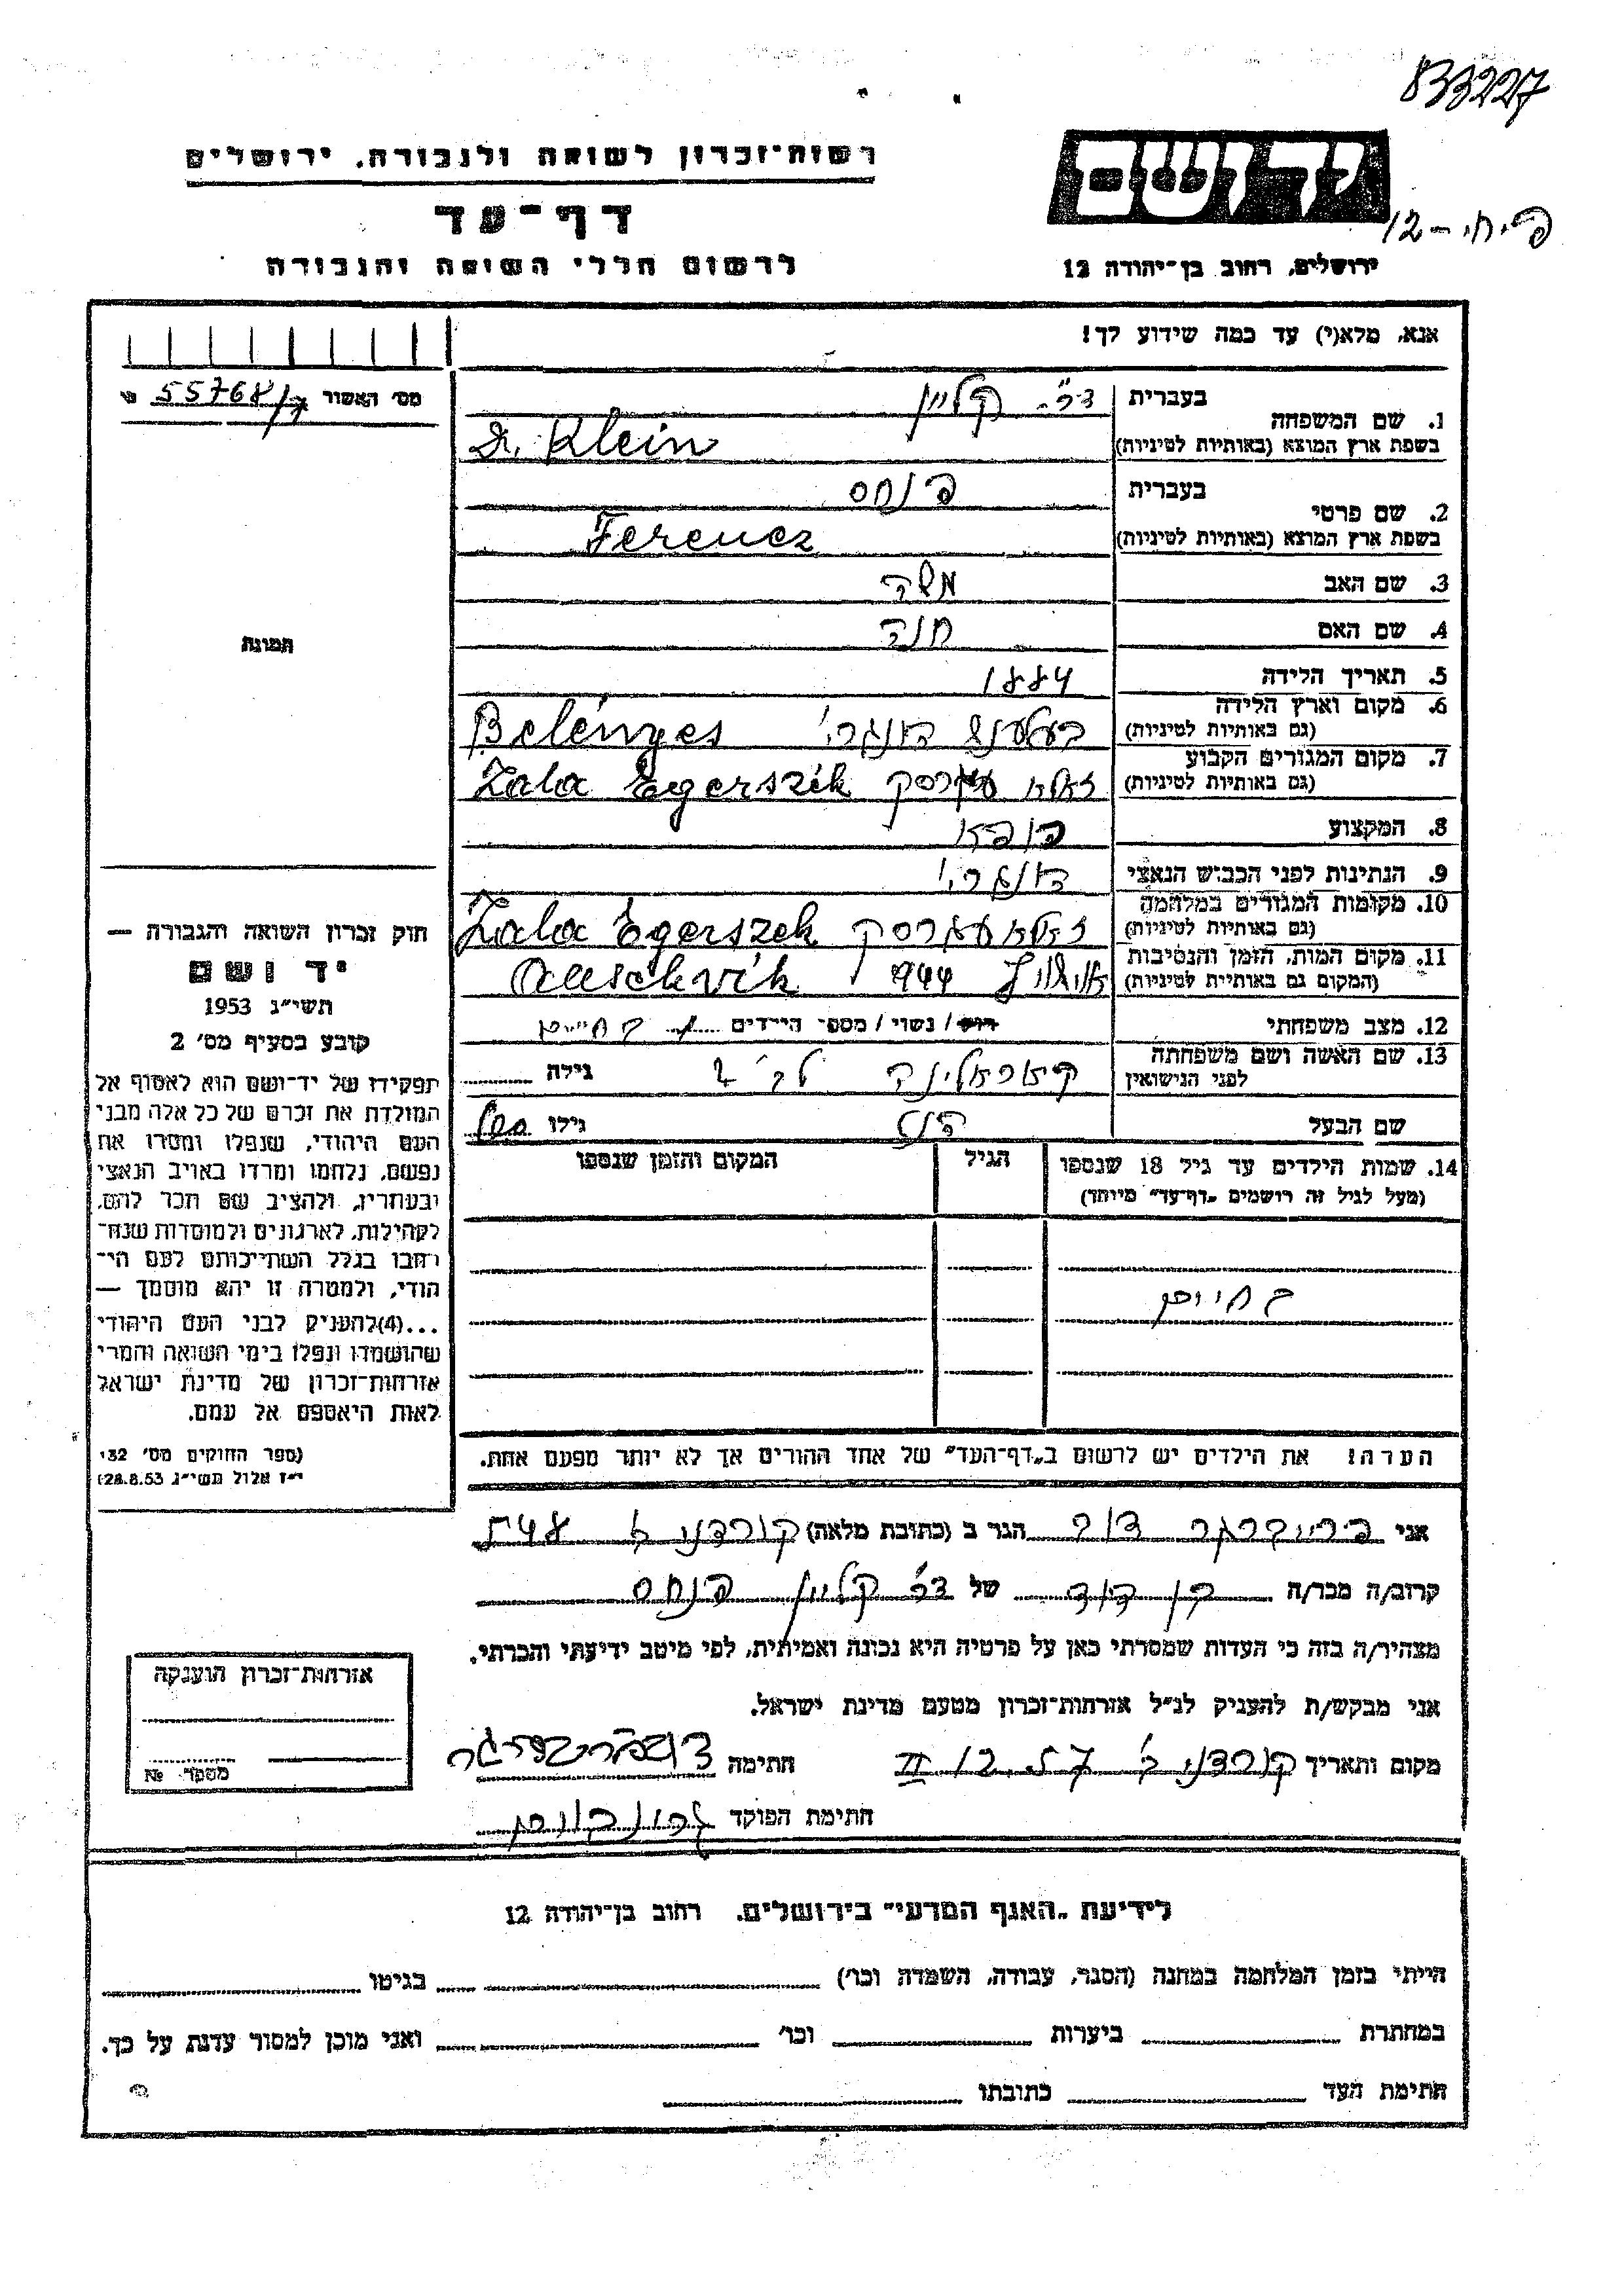 833227
רשות-זכרון לשואה ולגבורה, ירושלים
יד ושם
דף-עד
12-
לרשום חללי השואה והגבורה
ירושלים, רחוב בן-יהודה 12
אנא, מלא(י) עד כמה שידוע לך!
מס' האשור 55768/
1. שם המשפחה
בעברית דר. קליין
בשפת ארץ המוצא (באותיות לטיניות) Dr. Klein
2. שם פרטי
בעברית פנחס
בשפת ארץ המוצא (באותיות לטיניות) Ferencz
3. שם האב משה
4. שם האם חנה
תמונה
5. תאריך הלידה 1884
6. מקום וארץ הלידה
(גם באותיות לטיניות) הונגרי' Belényes
7. מקום המגורים הקבוע
(גם באותיות לטיניות) זאלא Zala Egerszék
8. המקצוע רופא
9. הנתינות לפני הכבוש הנאצי הונגרי'
10. מקומות המגורים במלחמה
(גם באותיות לטיניות) זאלא Zala Egerszek
11. מקום המות, הזמן והנסיבות
(המקום גם באותיות לטיניות) 1944
12. מצב משפחתי רווק / נשוי / מספר הילדים
13. שם האשה ושם משפחתה
לפני הנישואין גילה
שם הבעל גילו
14. שמות הילדים עד גיל 18 שנספו
(מעל לגיל זה רושמים "דף-עד" מיוחד)
הגיל
המקום והזמן שנספו
הערה! את הילדים יש לרשום ב"דף-העד" של אחד ההורים אך לא יותר מפעם אחת.
חוק זכרון השואה והגבורה —
יד ושם
תשי"ג 1953
קובע בסעיף מס' 2
תפקידו של יד-ושם הוא לאסוף אל
המולדת את זכרם של כל אלה מבני
העם היהודי, שנפלו ומסרו את
נפשם, נלחמו ומרדו באויב הנאצי
ובעוזריו, ולהציב שם וזכר להם,
לקהילות, לארגונים ולמוסדות שנח-
רבו בגלל השתייכותם לעם הי-
הודי, ולמטרה זו יהא מוסמך —
...(4)להעניק לבני העם היהודי
שהושמדו ונפלו בימי השואה והמרי
אזרחות-זכרון של מדינת ישראל
לאות היאספם אל עמם.
(ספר החוקים מס' 132
י"ז אלול תשי"ג 28.8.53)
אני דוב הגר ב (כתובת מלאה)
קרוב/ה מכר/ה בן דוד של דר' קליין פנחס
מצהיר/ה בזה כי העדות שמסרתי כאן על פרטיה היא נכונה ואמיתית, לפי מיטב ידיעתי והכרתי.
אני מבקש/ת להעניק לנ"ל אזרחות-זכרון מטעם מדינת ישראל.
מקום ותאריך 12. II חתימה
חתימת הפוקד
אזרחות-זכרון הוענקה
מספר №
לידיעת "האגף המדעי" בירושלים, רחוב בן-יהודה 12
הייתי בזמן המלחמה במחנה (הסגר, עבודה, השמדה וכו') בגיטו
במחתרת ביערות וכו' ואני מוכן למסור עדות על כך.
חתימת העד כתובתו